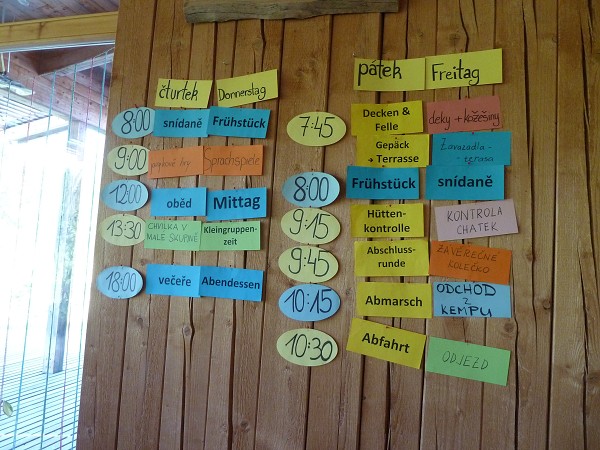 čtvrtek Donnerstag
8:00 snídaně Frühstück
9:00 jazykové hry Sprachspiele
12:00 oběd Mittag
13:30 CHVILKA V MALÉ SKUPINĚ Kleingruppen-
zeit
18:00 večeře Abendessen
pátek Freitag
7:45 Decken &
Felle deky + kožešiny
Gepäck
+ Terrasse Zavazadla -
- terasa
8:00 Frühstück snídaně
9:15 Hütten-
kontrolle KONTROLA
CHATEK
9:45 Abschluss-
runde ZÁVĚREČNÉ
KOLEČKO
10:15 Abmarsch ODCHOD
Z
KEMPU
10:30 Abfahrt ODJEZD